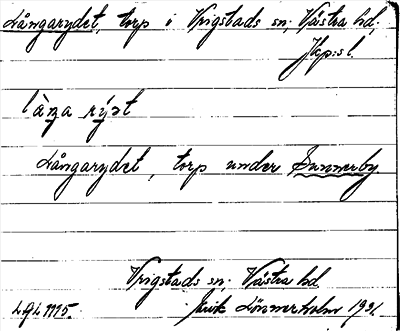 Långarydet, torp i Vrigstads sn; Västra hd;
Jkp:s l.
låŋa rýət
Långarydet, torp under Sunnerby.
Vrigstads sn; Västra hd
LgL 1115. Lönnerholm 1931.